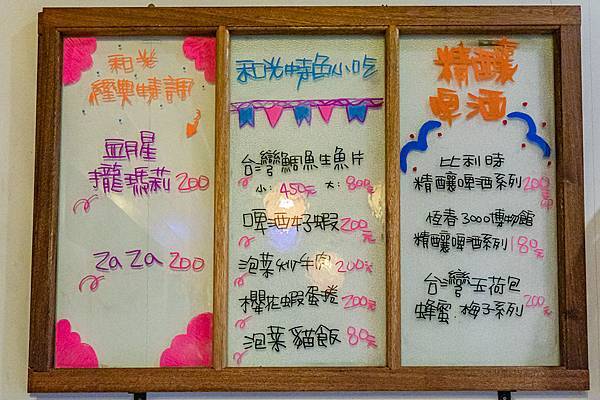 和光
經典啤調
血腥
攏瑪莉 200
zaza 200
和光特色小吃
台灣鯛魚生魚片
小:450元 大:800元
啤酒籽蝦 200元
泡菜炒牛肉 200元
櫻花蝦蛋捲 200元
泡菜貓飯 80元
精釀
啤酒
比利時
精釀啤酒系列 200
恆春3000博物館
精釀啤酒系列 180元
台灣玉荷包
蜂蜜.梅子系列 200元